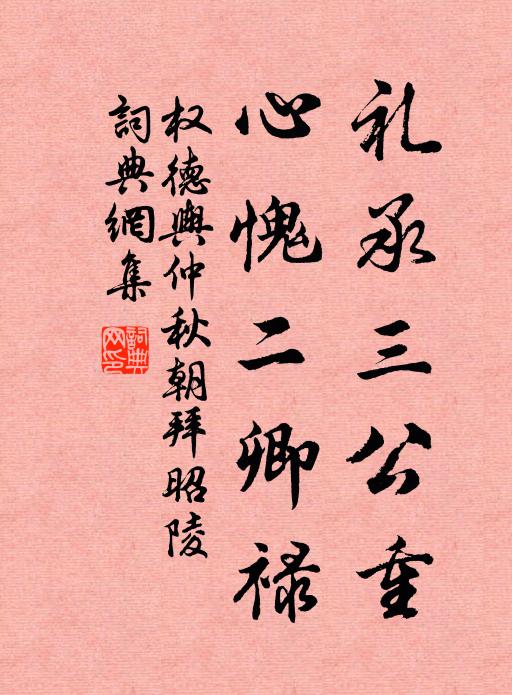 礼承三公重
心愧二卿禄
权德舆仲秋朝拜昭陵
词典網集
詞典
网印